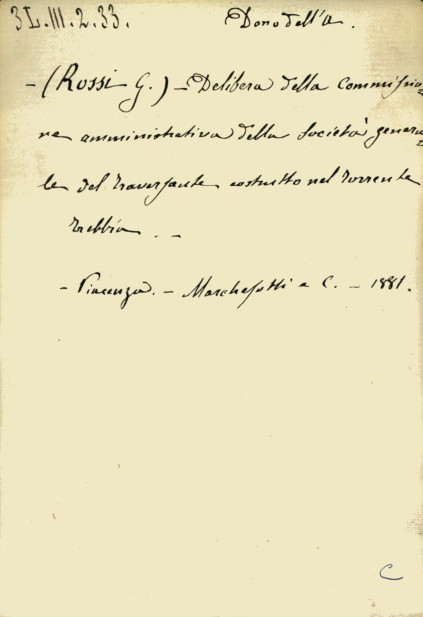 3L.III.2.33. Dono dell'A.
- (Rossi G.) - Delibera della Commissio-
ne amministrativa della Società genera-
le del Traversante costrutto nel Torrente
Trebbia. -
- Piacenza. - Marchesotti e C. - 1881.
C